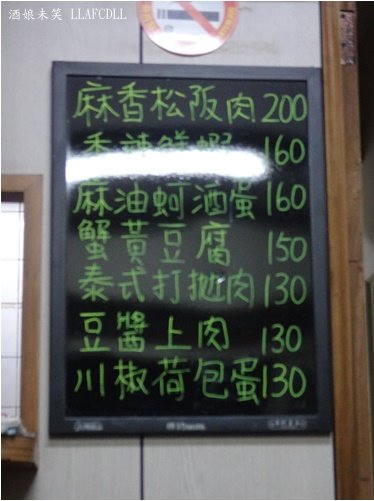 酒娘未笑 LLAFCDLL
麻香松阪肉200
香辣鮮蝦160
麻油蚵酒蛋160
蟹黃豆腐150
泰式打拋肉130
豆醬上肉130
川椒荷包蛋130